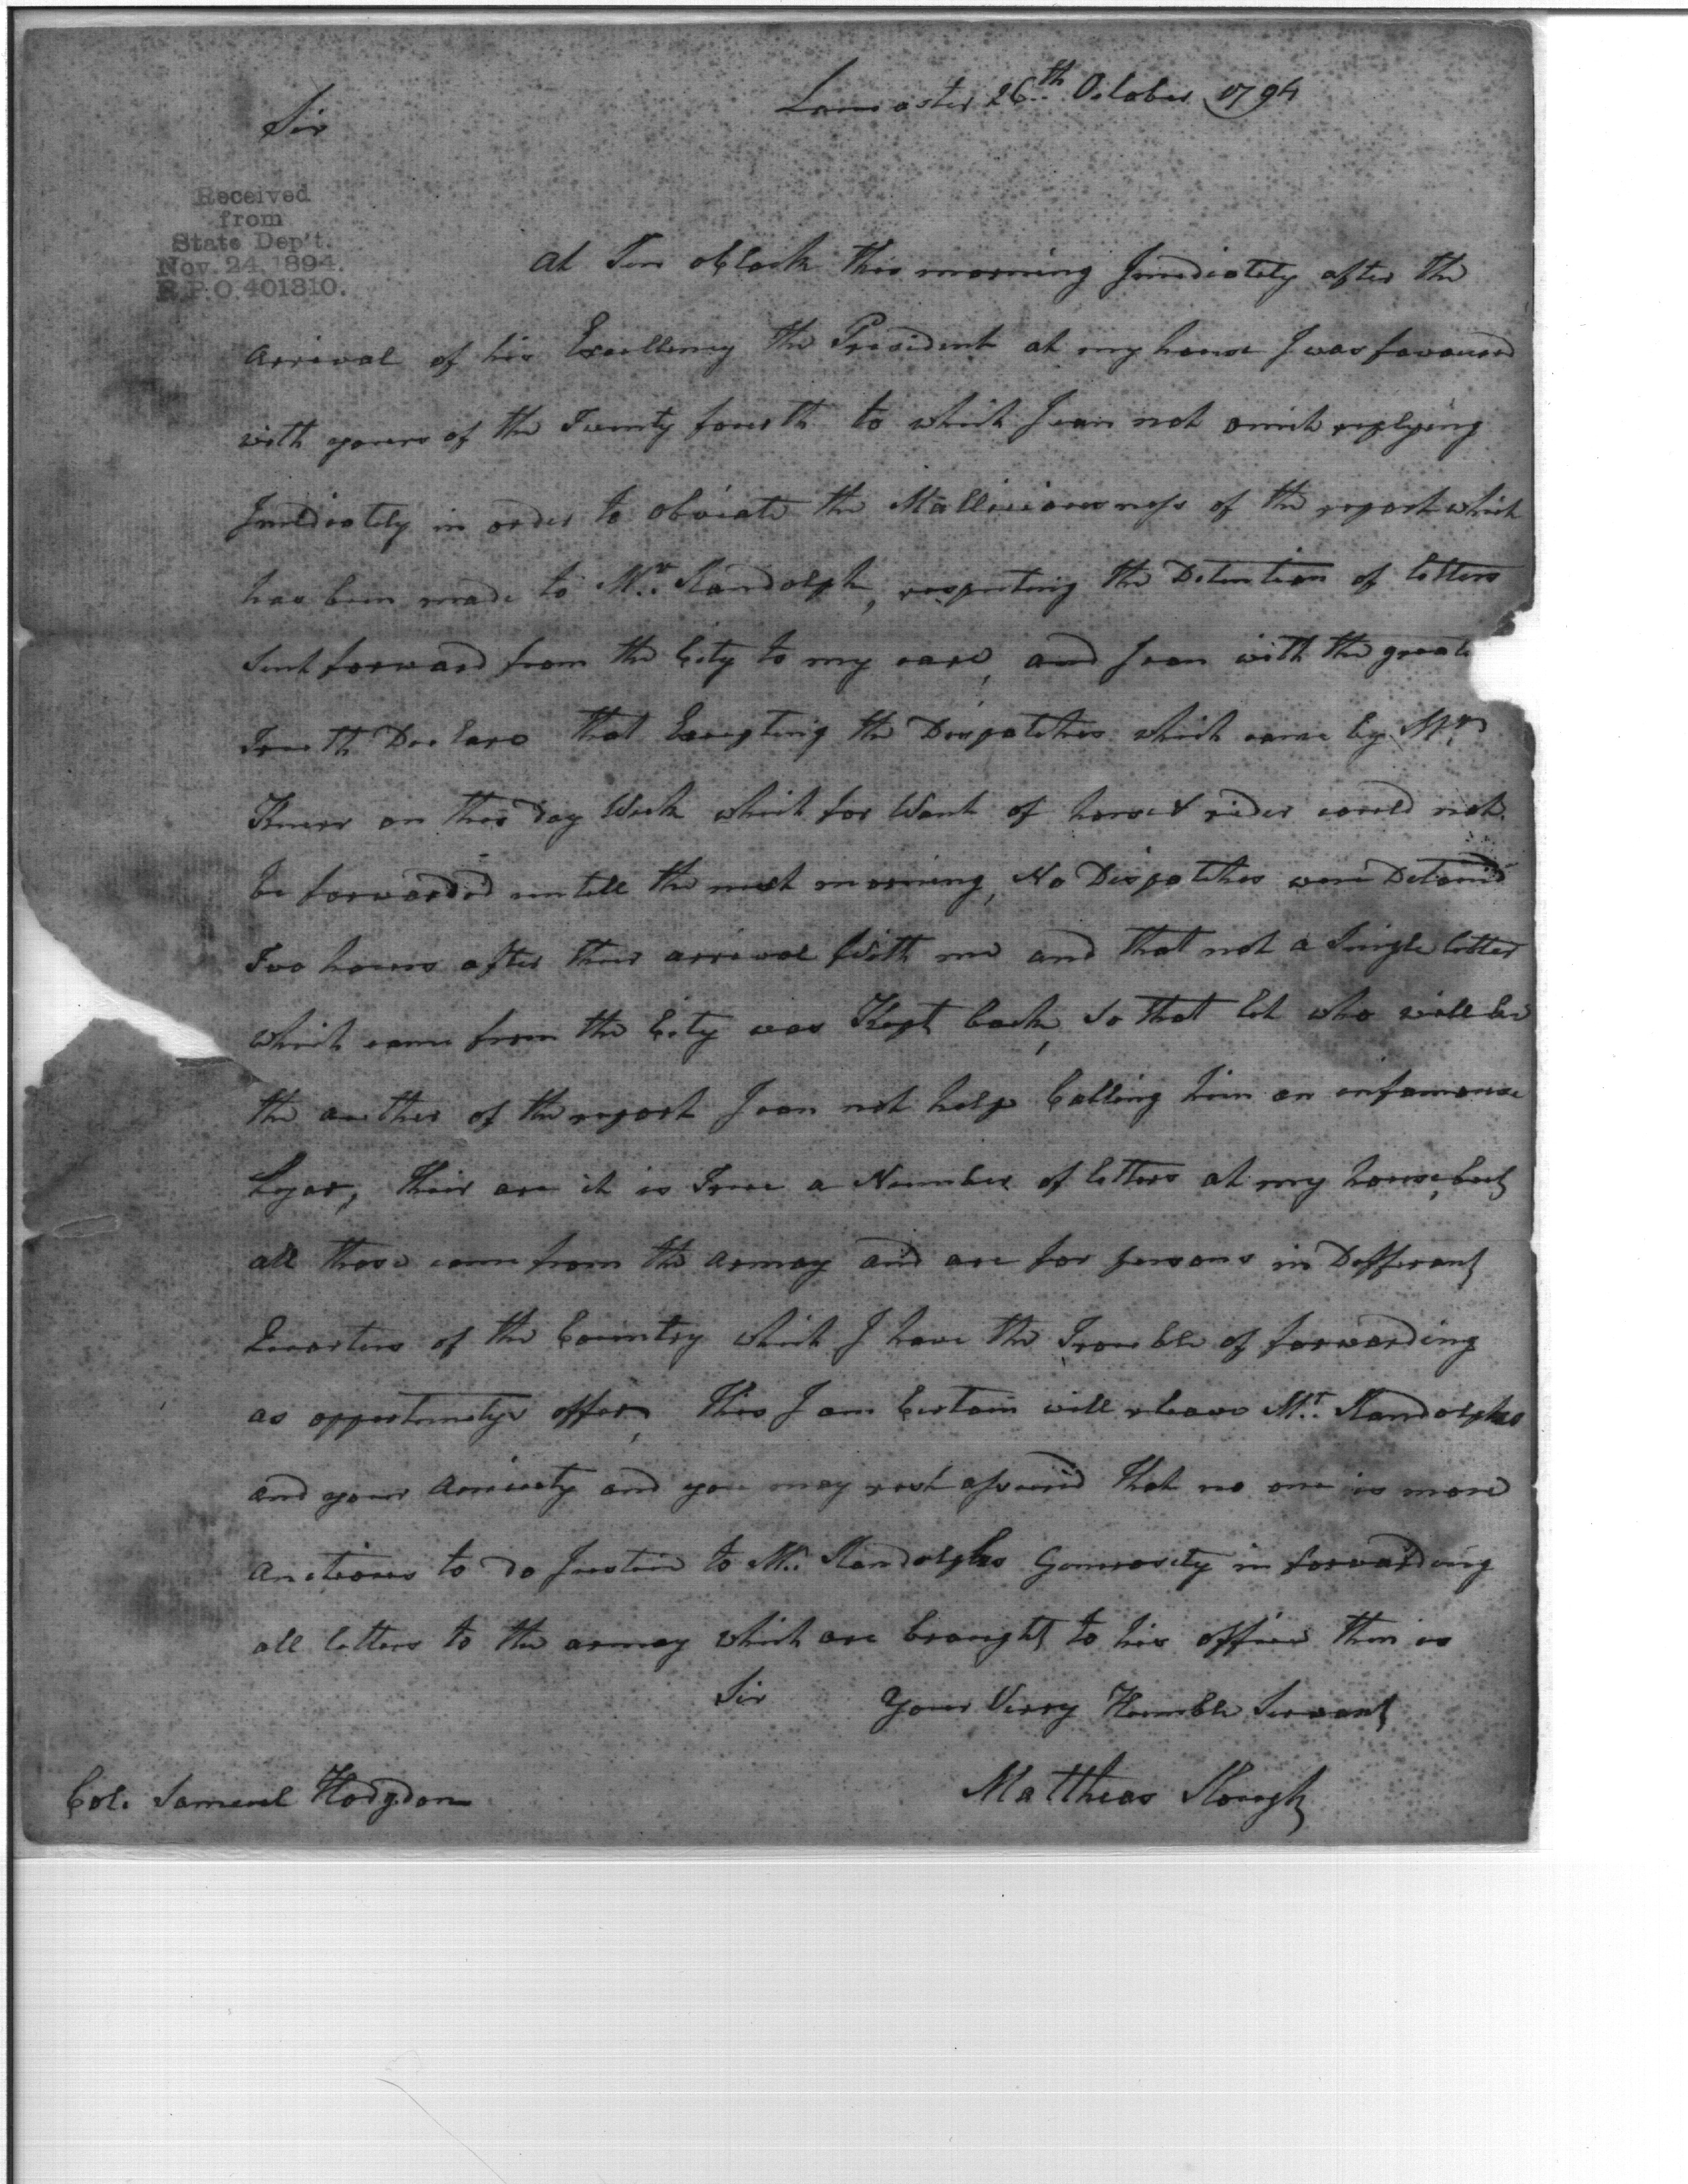 Lancaster 26th October 1794
Sir
Received
from
State Dep't.
Nov. 24, 1894.
R.P.O. 401310.
At Ten oClock this morning Imediately after the
arrival of his Excellency the President at my house I was favoured
with yours of the Twenty fourth to which I can not omit replying
Imediately in order to obviate the Malliciousness of the report which
has been made to Mr. Randolph, respecting the Detention of letters
sent forward from the City to my care, and I can with the greate
Trouth Declare that Excepting the Dispatches which came by Mr
on this Day Week which for Want of horse & rider could not
be forwarded untill the next morning, No Dispatches were Detaind
Two hours after their arrival With me and that not a Single letter
which came from the City was Kept back, so that let who will be
the auther of the report I can not help Calling him an infamouse
Lyar, their are it is True a Number of letters at my house, but
all those came from the armay and are for persons in Differant
Quarters of the Country which I have the Trouble of forwarding
as oppertunitys offer, This I am Certain will releave Mr. Randolphs
and your anxiety and you may rest assured that no one is more
anctious to do Justice to Mr. Randolphs Generosity in forwarding
all letters to the armay which are brought to his office then is
Sir Your Verry Humble Servant
Matthias Slough
Col. Samuel Hodgdon